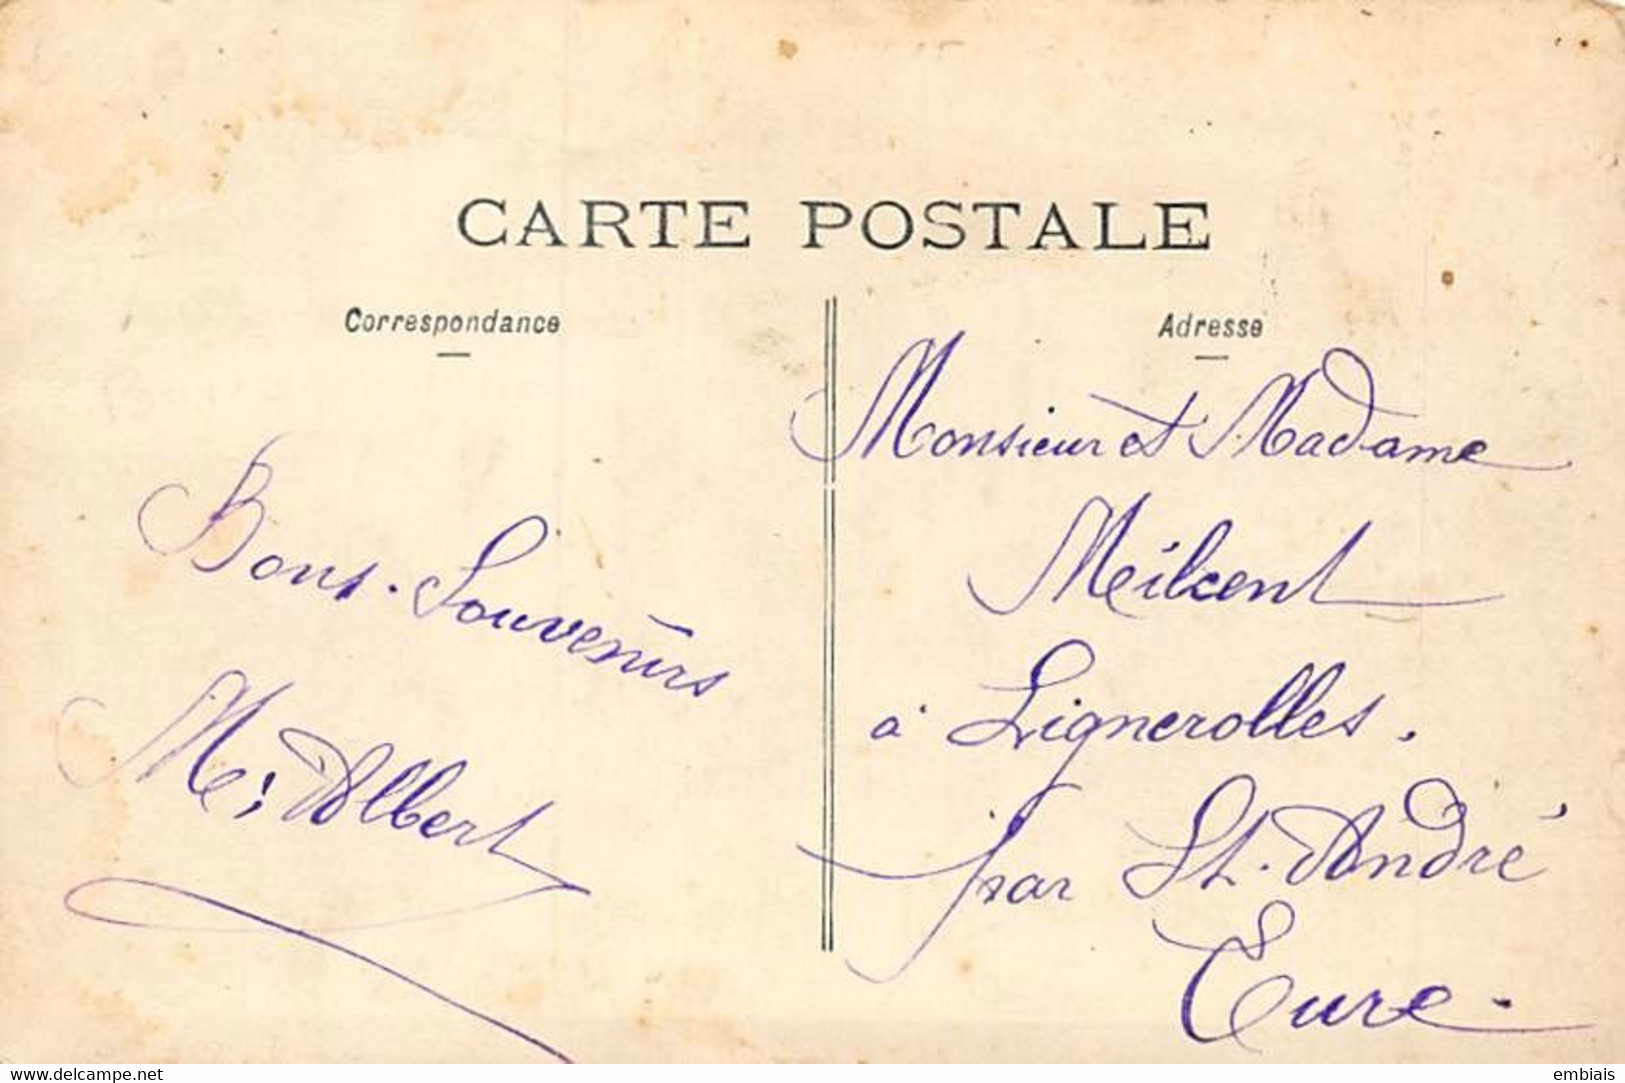 CARTE POSTALE
Correspondance
Adresse
Bons Souvenirs
M. Albert
Monsieur et Madame
Milcent
à Lignerolles.
par St. André
Eure.
www.delcampe.net
embiais